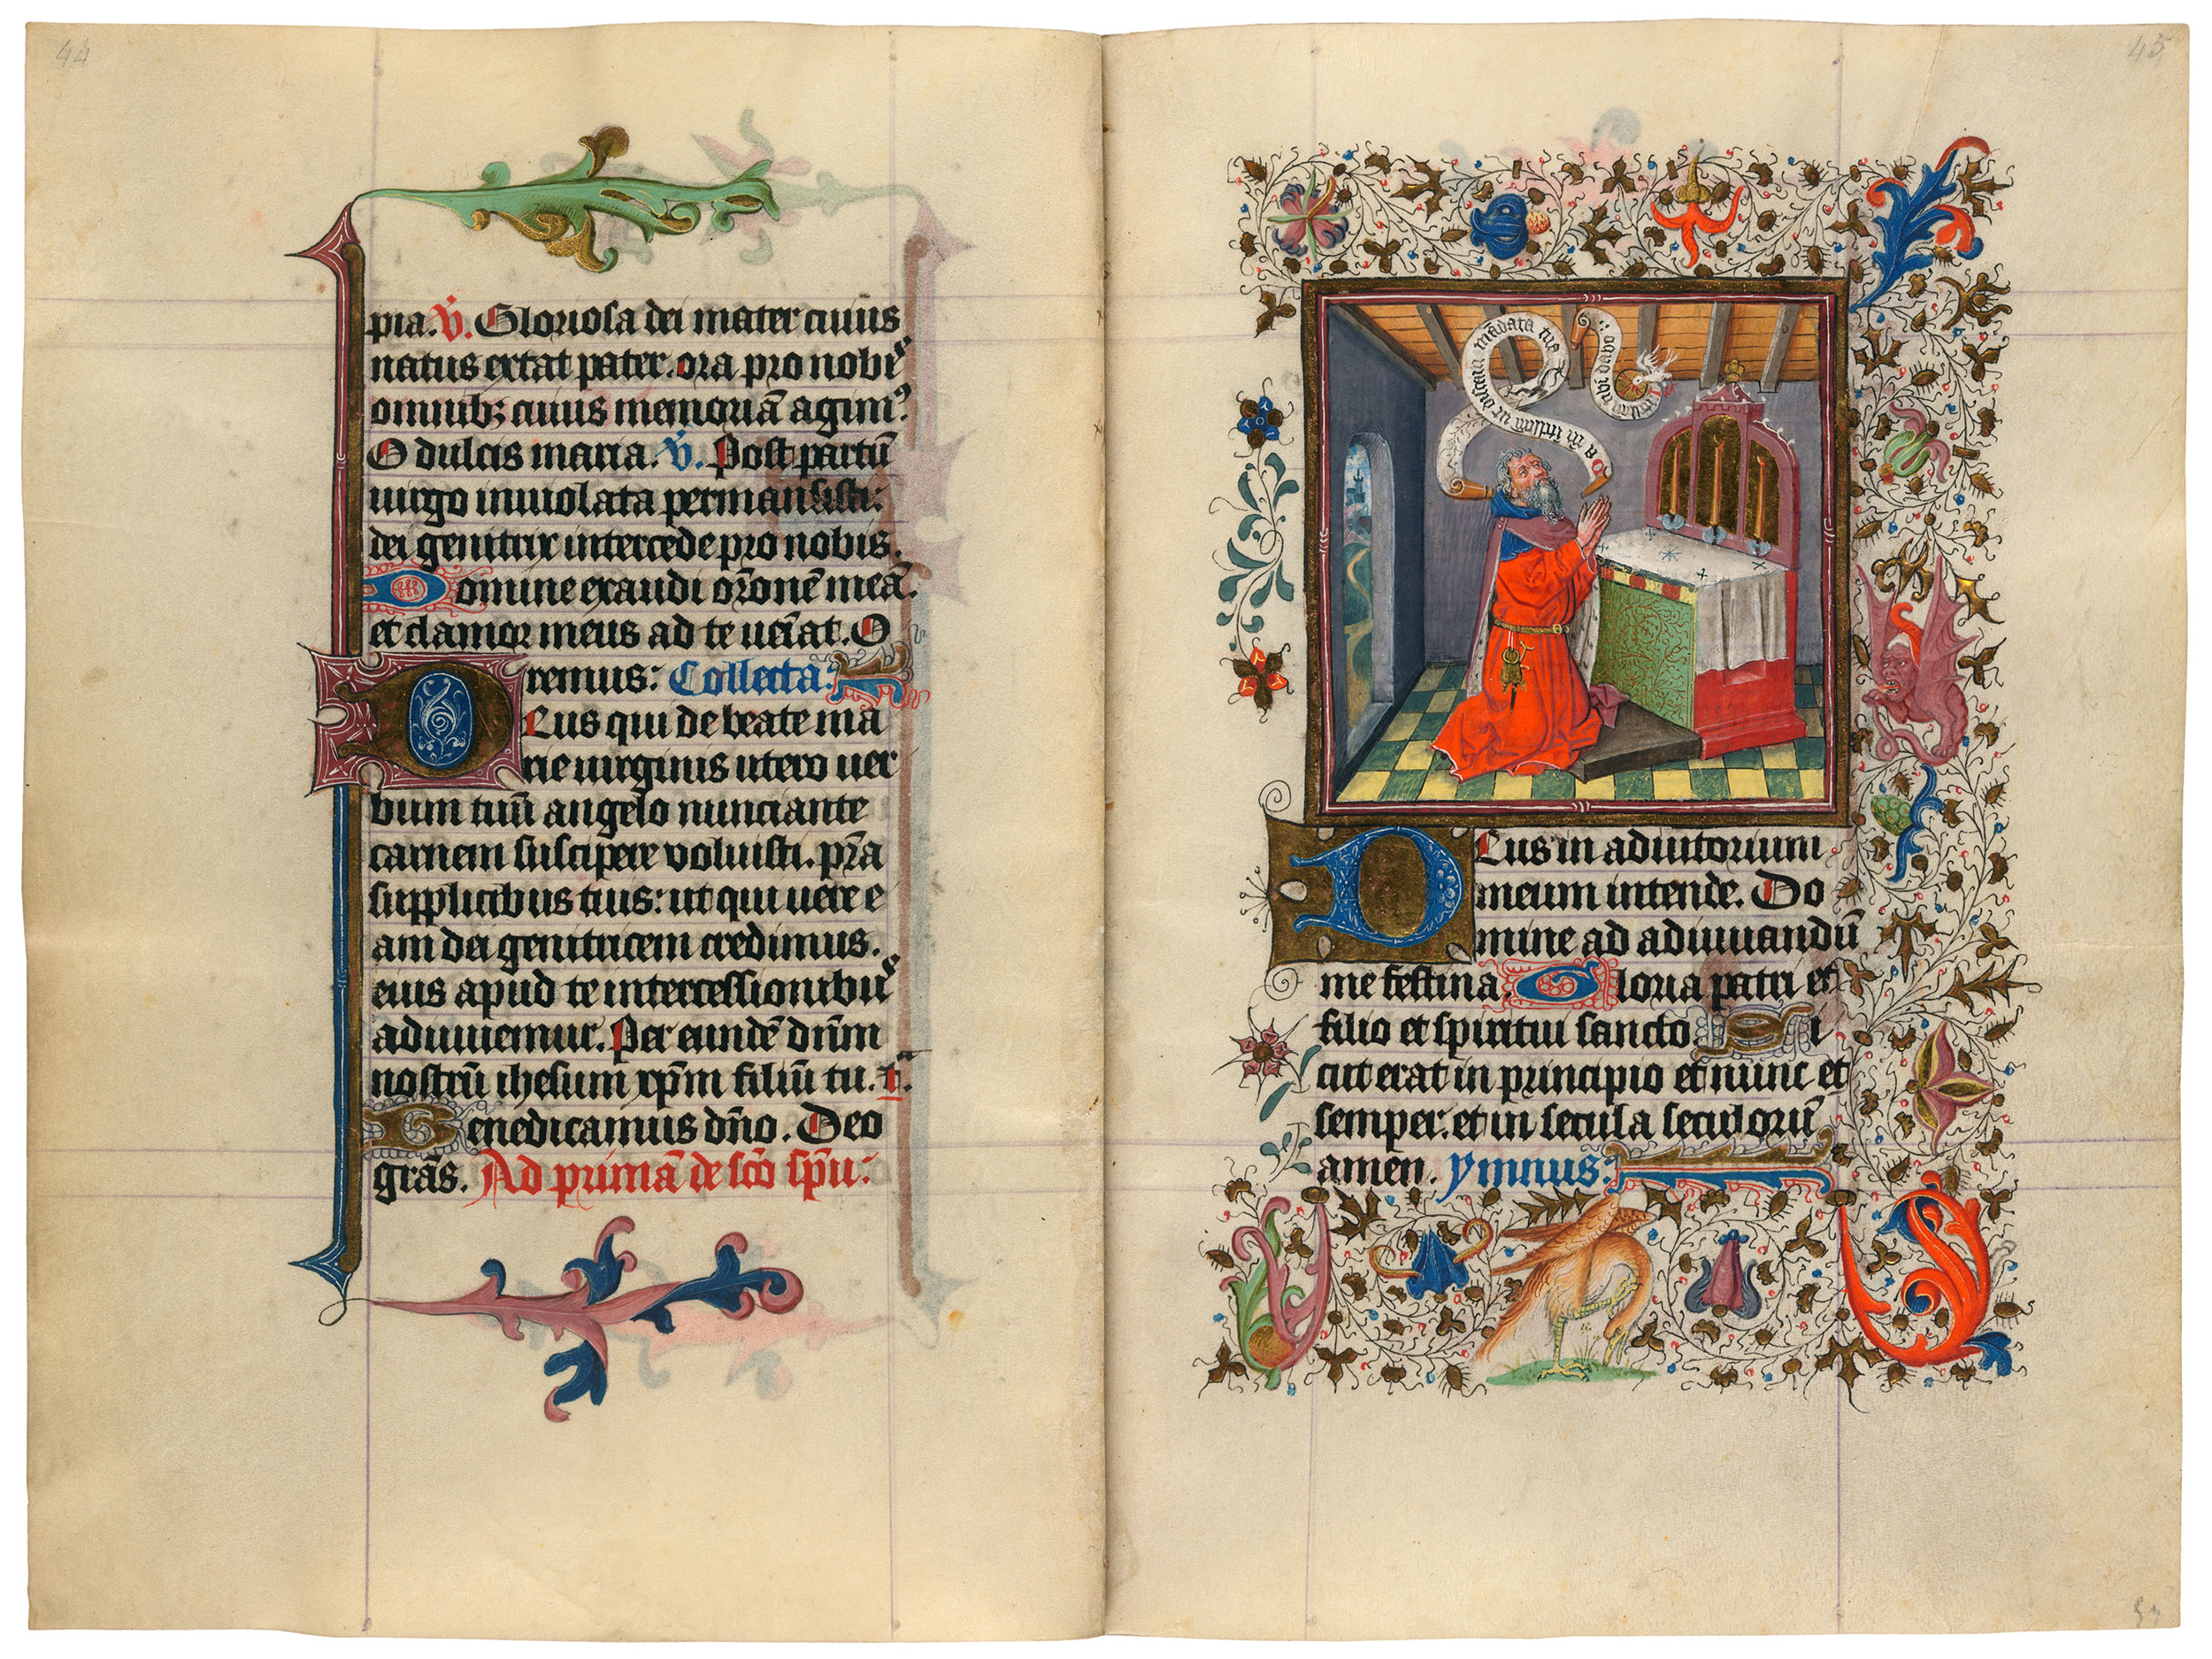 44
pia. V. Gloriosa dei mater cuius
natus extat pater. ora pro nobis
omnibꝫ cuius memoriā agimꝰ.
O dulcis maria. V. Post partū
uirgo inuiolata permansisti:
dei genitrix intercede pro nobis.
Domine exaudi or̄onē meā.
et clamor meus ad te ueniat. O
remus: Collecta:
Deus qui de beate ma
rie uirginis utero uer
bum tuū angelo nunciante
carnem suscipere voluisti. pr̄a
supplicibus tuis: ut qui uere e
am dei genitricem credimus.
eius apud te intercessionibus
adiuuemur. Per eundē dn̄m
nostrū ihesum xp̄m filiū tu.
Benedicamus dn̄o. Deo
grās. Ad primā de sc̄o sp̄u:
45
mādata tua
tibi dabo
Deus in adiutorium
meum intende. Do
mine ad adiuuandū
me festina. Gloria patri et
filio et spiritui sancto. Si
cut erat in principio et nunc et
semper. et in secula seculorū
amen. ymnus: